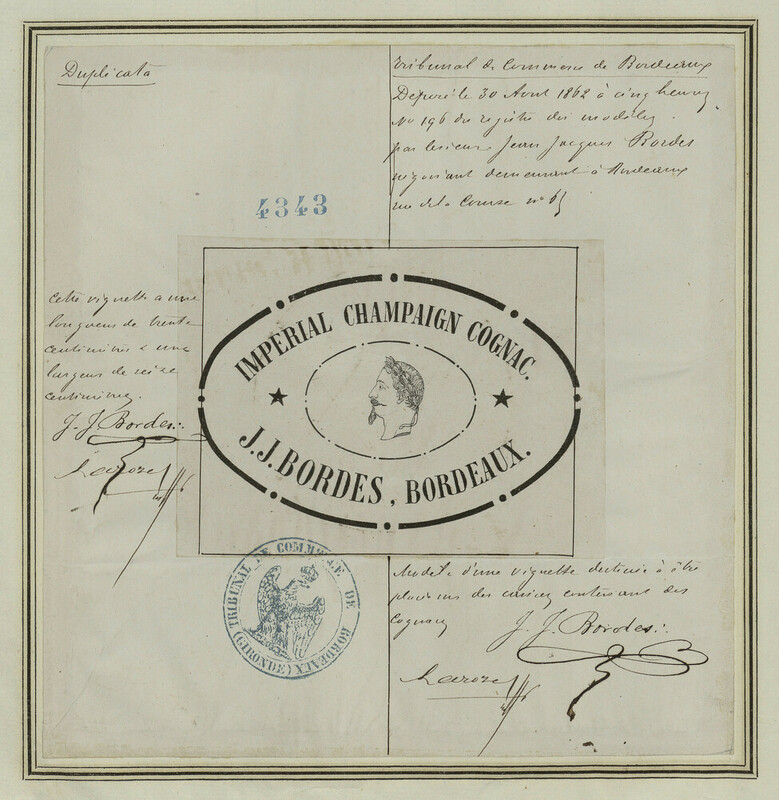 Duplicata
Tribunal de Commerce de Bordeaux
Déposé le 30 Avril 1862 à cinq heures
No 196 du registre des modèles
par le sieur Jean Jacques Bordes
négociant demeurant à Bordeaux
rue de la Course no
4343
Cette vignette a une
longueur de trente
centimètres & une
largeur de seize
centimètres.
J. J. Bordes
IMPERIAL CHAMPAIGN COGNAC.
J.J. BORDES, BORDEAUX.
TRIBUNAL DE COMMERCE DE BORDEAUX (GIRONDE)
Modèle d'une vignette destinée à être
placée sur des caisses contenant des
Cognacs
J. J. Bordes